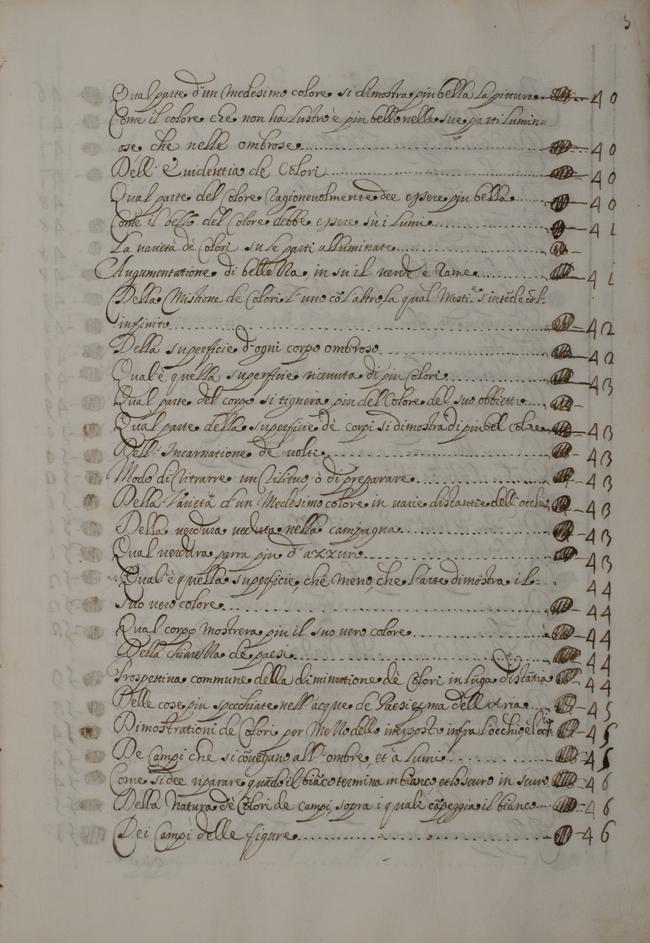 5
Qual parte d'un medesimo colore si dimostra piu bella la pittura 40
Come il colore che non ha lustro è piu bello nelle sue parti lumin=
ose che nelle ombrose 40
Dell' Evidentia de Colori 40
Qual parte del Colore ragionevolmente dee essere piu bella 40
Come il bello del Colore debbe essere sù i lumi 41
La varietà de Colori su le parti alluminate
Augumentatione di bellezza in su il verde e Rame 41
Della Mistione de Colori l'uno cõ l'altro, la qual Misti: s'intẽde cõl=
infinito 42
Della superficie d'ogni corpo ombroso 42
Qual'è quella superficie ricevuta di piu Colori 43
Qual parte del corpo si tignera piu del Colore del suo obbietto
Qual parte della superficie de corpi si dimostra di piu bel Colore 43
Dell' Incarnatione de volti 43
Modo di ritrarre un rilievo, ò di preparare 43
Della Varietà d'un Medesimo colore in varie distantie dell'occhio 43
Della verdura veduta nella campagna 43
Qual verdura parra piu d'azzurro 43
Qual'è quella superficie, che meno, che l'altre dimostra il= 44
suo vero colore 44
Qual corpo mostrera piu il suo vero colore 44
Della chiarezza de paesi 44
Prospettiva commune della diminutione de Colori in lũga distãtia 44
Delle cose piu specchiate nell'acque de Paesi e pma dell'Aria 45
Dimostrationi de Colori per mezzo dello imposto infra l'occhio è
De Campi che si convengano all'ombre, et à lumi
Come si dee riparare quãdo il biãco termina in bianco et lo scuro in scuro 46
Della natura de Colori de campi, sopra i quali cãpeggia il bianco 46
Dei Campi delle figure 46